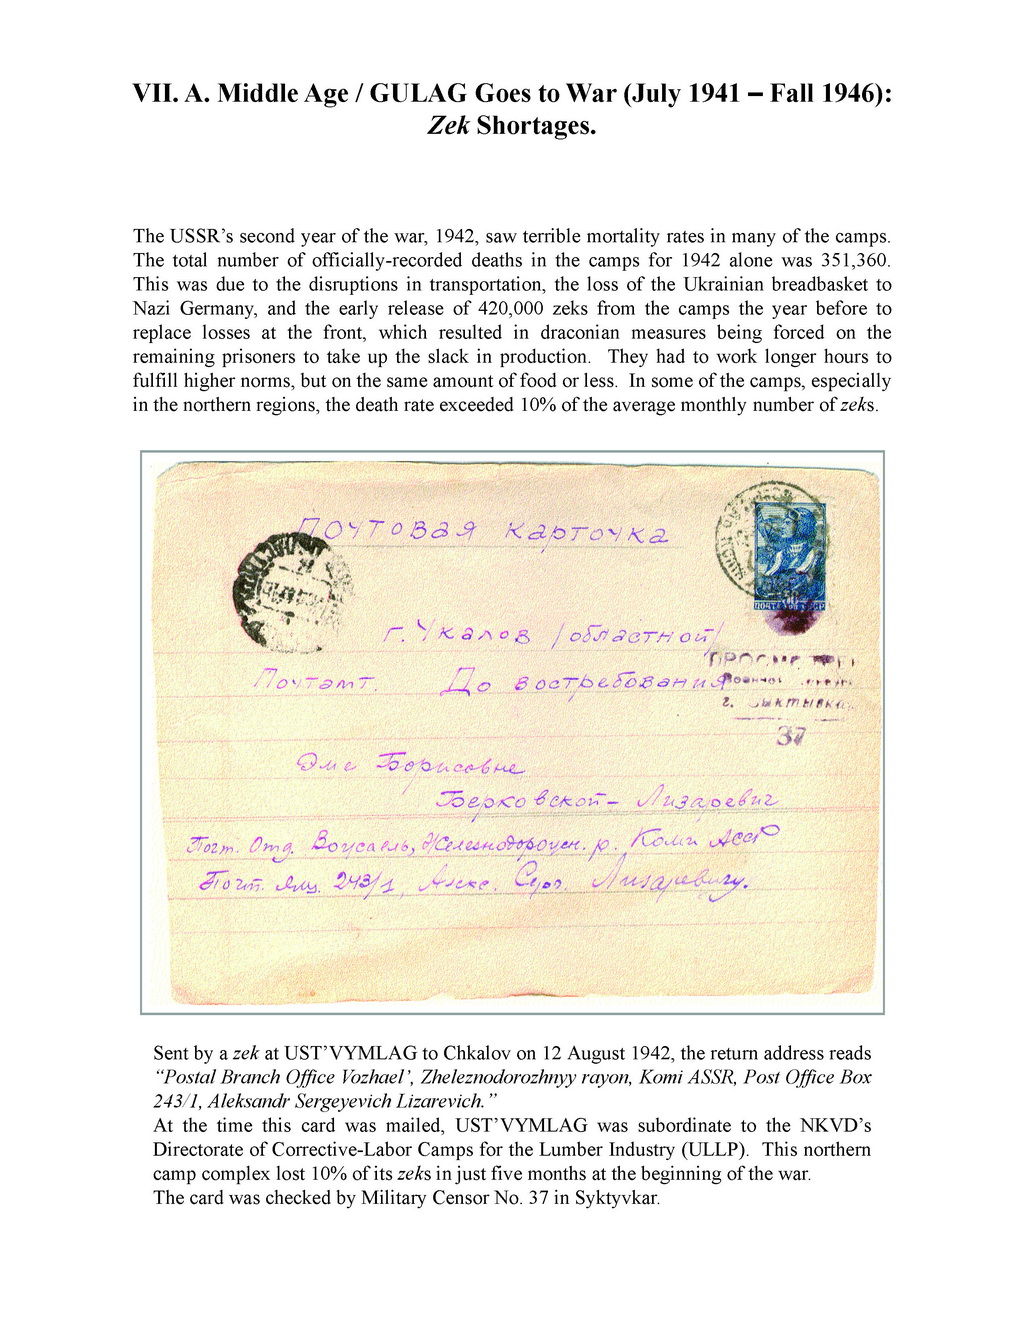 VII. A. Middle Age / GULAG Goes to War (July 1941 – Fall 1946):
Zek Shortages.
The USSR’s second year of the war, 1942, saw terrible mortality rates in many of the camps.
The total number of officially-recorded deaths in the camps for 1942 alone was 351,360.
This was due to the disruptions in transportation, the loss of the Ukrainian breadbasket to
Nazi Germany, and the early release of 420,000 zeks from the camps the year before to
replace losses at the front, which resulted in draconian measures being forced on the
remaining prisoners to take up the slack in production.  They had to work longer hours to
fulfill higher norms, but on the same amount of food or less.  In some of the camps, especially
in the northern regions, the death rate exceeded 10% of the average monthly number of zeks.
Почтовая карточка
г. Чкалов /областной/
Почтамт. До востребования
г. Сыктывкар
37
Эме Борисовне
Берковской - Лизаревич
Почт. Отд. Вожаель, Железнодорожн. р. Коми АССР
Почт. Ящ. 243/1, Алекс. Серг. Лизаревичу.
Sent by a zek at UST’VYMLAG to Chkalov on 12 August 1942, the return address reads
“Postal Branch Office Vozhael’, Zheleznodorozhnyy rayon, Komi ASSR, Post Office Box
243/1, Aleksandr Sergeyevich Lizarevich.”
At the time this card was mailed, UST’VYMLAG was subordinate to the NKVD’s
Directorate of Corrective-Labor Camps for the Lumber Industry (ULLP).  This northern
camp complex lost 10% of its zeks in just five months at the beginning of the war.
The card was checked by Military Censor No. 37 in Syktyvkar.